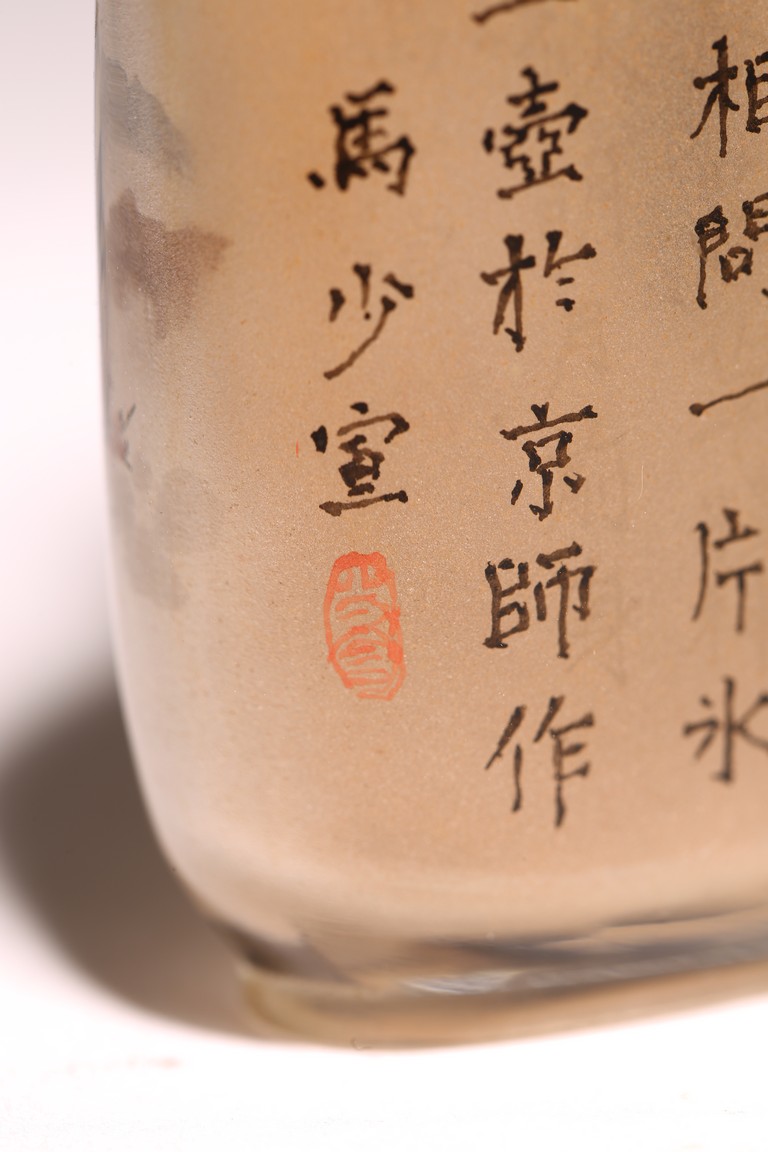 相問一片氷
壺於京師作
馬少宣